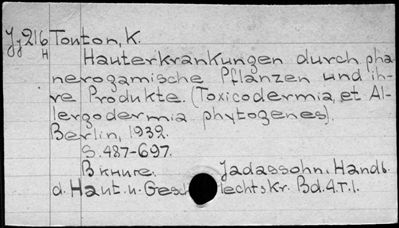 Yj216 Touton, K.
H Hauterkrankungen durch pha
nerogamische Pflanzen und ih-
re Produkte. (Toxicodermia et Al-
lergodermia phytogenes).
Berlin, 1932.
S. 487-697.
В книге. Jadassohn. Handb.
d. Haut. u. Geschlechtskr. Bd. 4. T. 1.